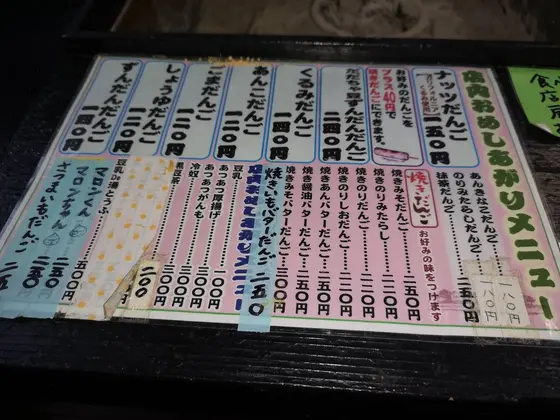 店内おめしあがりメニュー
ナッツだんご
一五〇円
お好みのだんごを
プラス40円で
焼きだんごにできます。
だだちゃ豆ずんだだんご
二四〇円
くるみだんご
一四〇円
あんこだんご
一二〇円
ごまだんご
一二〇円
しょうゆだんご
一二〇円
ずんだだんご
一四〇円
あんきなこだんご
一八〇円
のりみたらしだんご
一八〇円
抹茶だんご
二五〇円
焼きだんご
お好みの味をつけます
焼きみそだんご
一五〇円
焼きのりみたらし
二二〇円
焼きのりしおだんご
二二〇円
焼きのりだんご
二二〇円
焼きあんバターだんご
焼き醤油バターだんご
焼きみそバターだんご
焼きいもバターだんご
二五〇
店内おめしあがりメニュー
豆乳
一〇〇円
あつあつ厚揚げ
あつあつがんも
冷奴
三〇〇円
黒豆茶
二〇〇
豆乳De湯どうふ
五〇〇円
マロンくん
二五〇
マロンちゃん
二五〇
さつまいもだんご